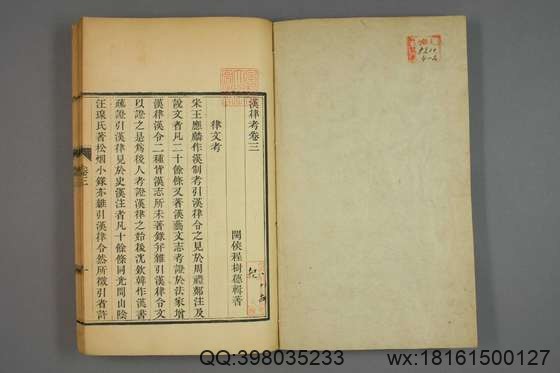 漢律考卷三
閩侯程樹德輯著
律文考
宋王應麟作漢制考引漢律令之見於周禮鄭注及
說文者凡二十餘條又著漢藝文志考證於法家增
漢律漢令二種皆漢志所未著錄并雜引漢律令文
以證之是為後人考證漢律之始後沈欽韓作漢書
疏證引漢律見於史漢注者凡十餘條同光間山陰
汪瑔氏著松烟小錄亦雜引漢律令然所徵引者許
卷三
一
QQ:398035233
wx:18161500127